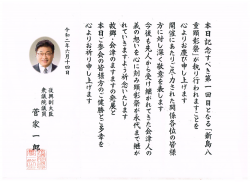 本日記念すべき第一回目となる「新島八
重顕彰祭」が執り行われますことを
心よりお慶び申し上げます
開催にあたりご尽力された関係各位の皆様
方に対し深く敬意を表します
今後も先人から受け継がれてきた会津人の
義の想いを心に刻み顕彰祭が永代まで継が
れていきますようご祈念いたします
故郷・会津のますますの発展と
本日ご参会の皆様方のご健勝とご多幸を
心よりお祈り申し上げます
令和二年六月十四日
復興副大臣
衆議院議員
菅家一郎